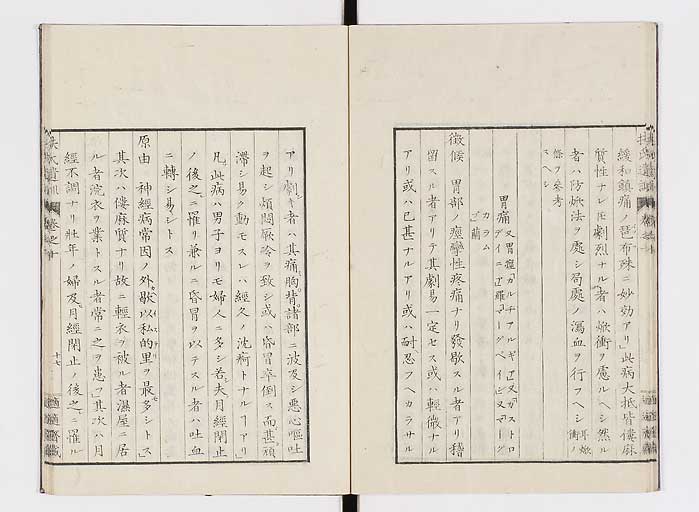 緩和鎮痛ノ琶布殊ニ妙効アリ」此病大抵皆僂麻
質性ナレ𪜈劇烈ナル者ハ焮衝ヲ慮ルヘシ然ル
者ハ防焮法ヲ處シ局處ノ瀉血ヲ行フヘシ耳焮衝ノ
條ヲ参考
スヘシ
胃痛
徴候 胃部ノ痙攣性疼痛ナリ發歇スル者アリ稽
留スル者アリテ其劇易一定セス或ハ輕微ナル
アリ或ハ已甚ナルアリ或ハ耐忍フヘカラサル
アリ劇キ者ハ其痛胸背諸部ニ波及シ悪心嘔吐
ヲ起シ煩悶厥冷ヲ致シ或ハ昏冒卒倒ス而甚頑
滞シ易ク動モスレハ經久ノ沈痾トナルヿアリ
凡此病ハ男子ヨリモ婦人ニ多シ若夫月經閉止
ノ後之ニ罹リ兼ルニ昏冒ヲ以テスル者ハ吐血
ニ轉シ易シトス
原由 神經病常因ノ外歇以私的里ヲ最多シトス」
其次ハ僂麻質ナリ故ニ輕衣ヲ被ル者濕屋ニ居
ル者浣衣ヲ業トスル者常ニ之ヲ患フ」其次ハ月
經不調ナリ壮年ノ婦及月經閉止ノ後之ニ罹ル
十七